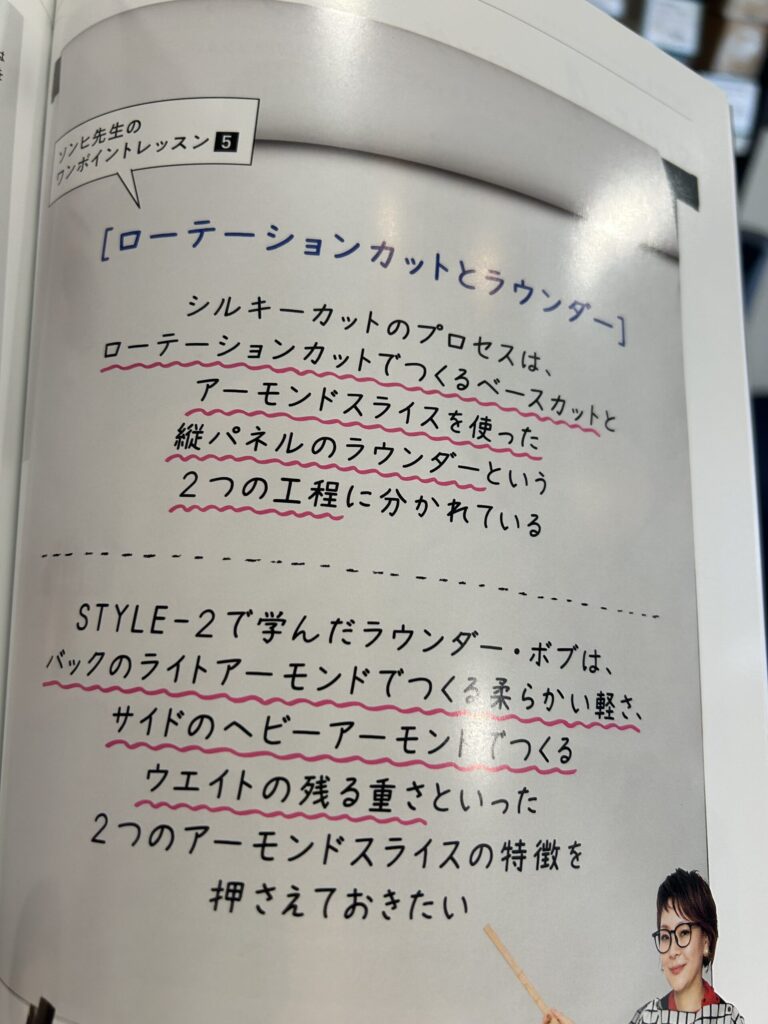 ソンヒ先生の
ワンポイントレッスン 5
[ローテーションカットとラウンダー]
シルキーカットのプロセスは、
ローテーションカットでつくるベースカットと
アーモンドスライスを使った
縦パネルのラウンダーという
2つの工程に分かれている
STYLE-2で学んだラウンダー・ボブは、
バックのライトアーモンドでつくる柔らかい軽さ、
サイドのヘビーアーモンドでつくる
ウエイトの残る重さといった
2つのアーモンドスライスの特徴を
押さえておきたい